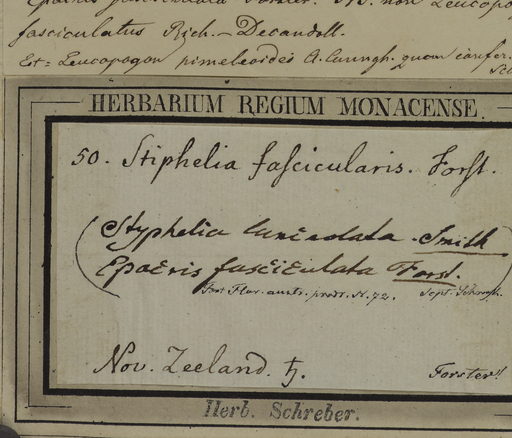 fasciculatus Rich. - Decandoll.
Est = Leucopogon pimeleoides A. Cunngh. quam confer.
HERBARIUM REGIUM MONACENSE.
50. Stiphelia fascicularis. Forst.
(Styphelia lanceolata. Smith
Epacris fasciculata Forst.
Forst Flor. austr. prodr. N. 72.
Nov. Zeeland. ♄. Forster!
Herb. Schreber.